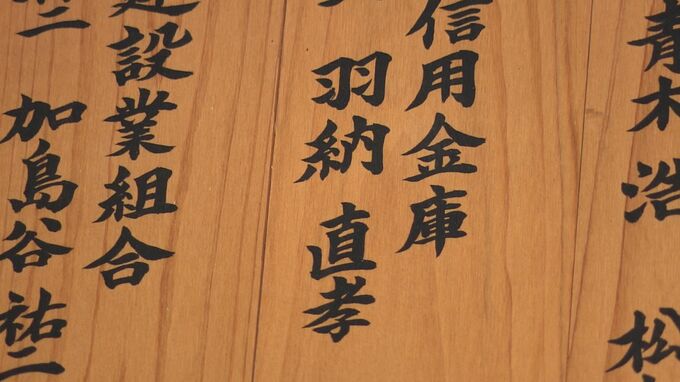 青木 浩
松
信用金庫
羽納 直孝
建設業組合
二 加島谷 祐二